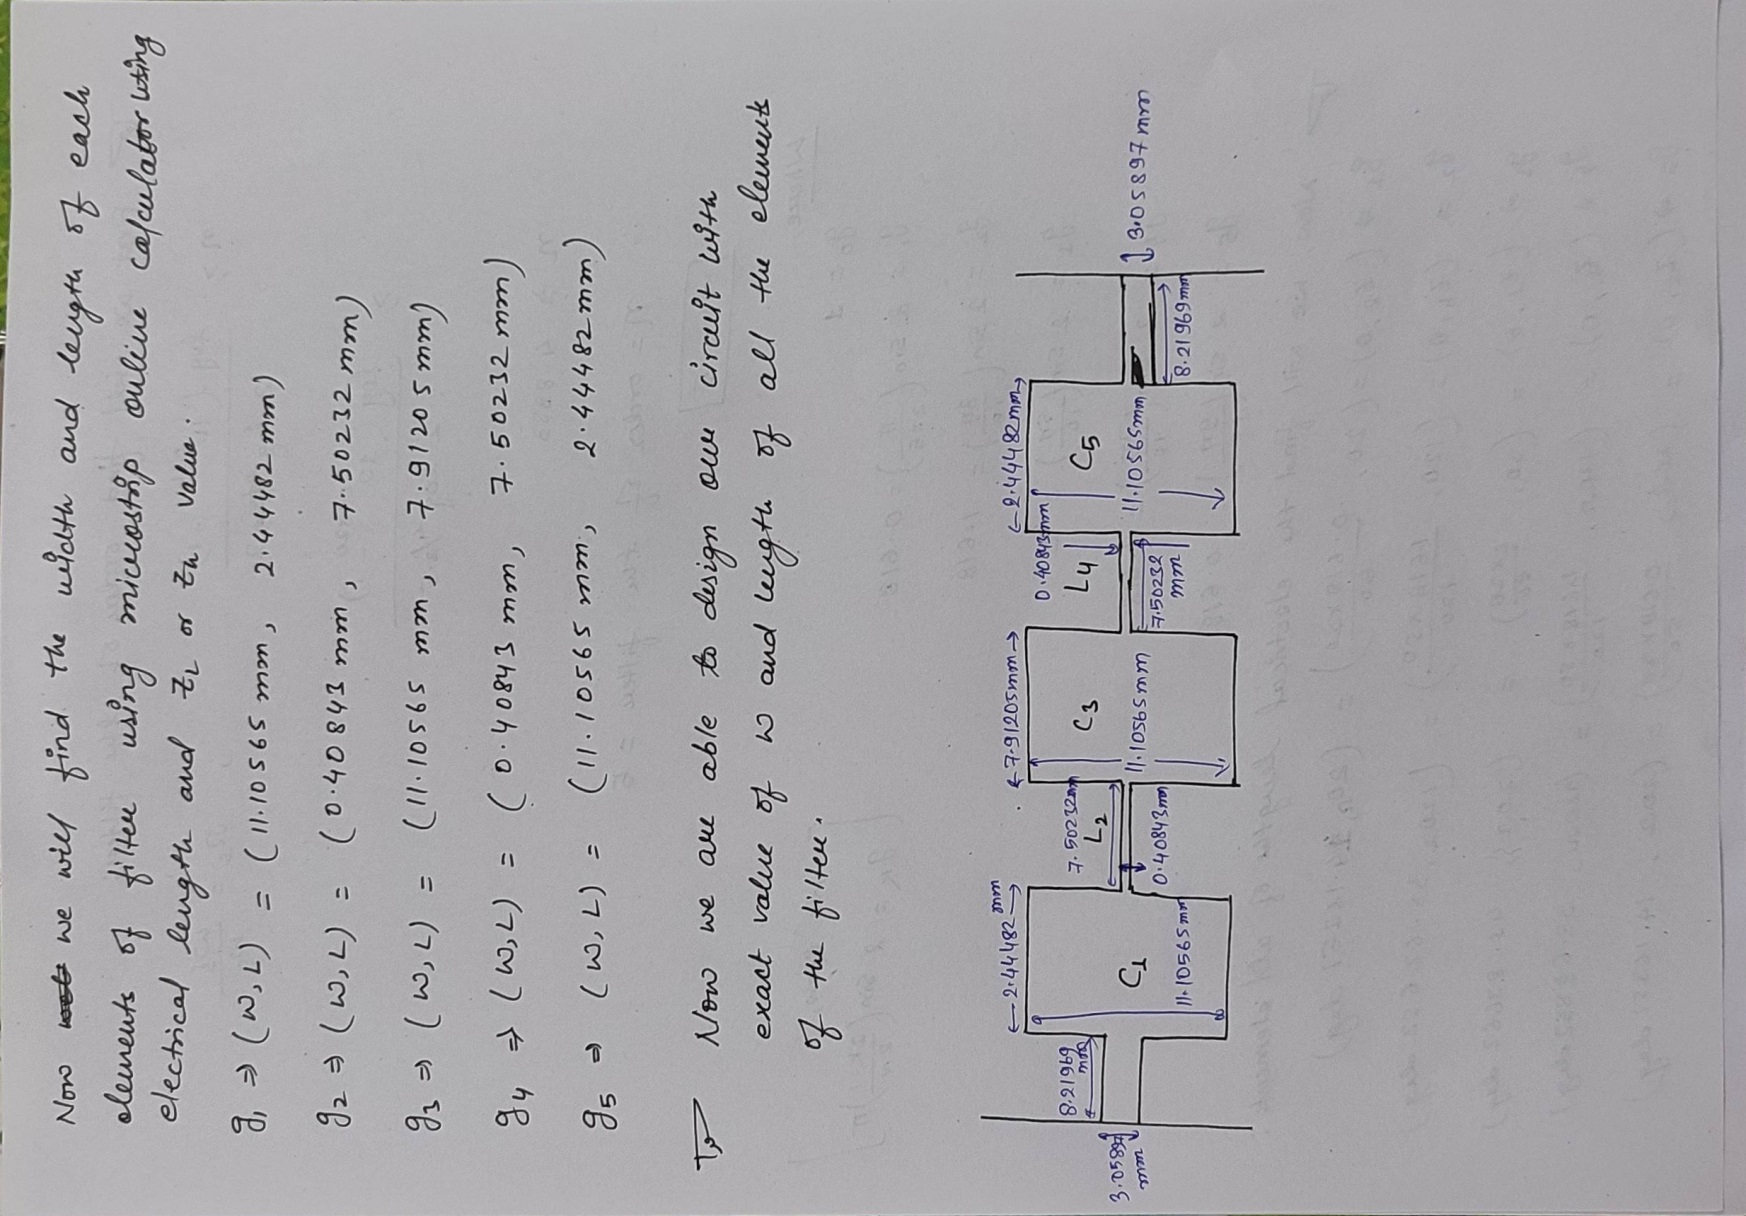 Now we will find the width and length of each
elements of filter using microstrip online calculator using
electrical length and ZL or Zh value.
g1 ⇒ (W, L) = (11.10565 mm, 2.44482 mm)
g2 ⇒ (W, L) = (0.40843 mm, 7.50232 mm)
g3 ⇒ (W, L) = (11.10565 mm, 7.91205 mm)
g4 ⇒ (W, L) = (0.40843 mm, 7.50232 mm)
g5 ⇒ (W, L) = (11.10565 mm, 2.44482 mm)
Now we are able to design our circuit with
exact value of W and length of all the element
of the filter.
3.05897 mm
8.21969 mm
2.44482 mm
C1
11.10565 mm
7.50232 mm
L2
0.40843 mm
7.91205 mm
C3
11.10565 mm
0.40843 mm
L4
7.50232 mm
2.44482 mm
C5
11.10565 mm
8.21969 mm
3.05897 mm